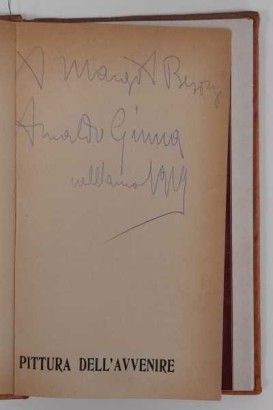 A Margot B
Arnaldo Ginna
nell'anno 1919
PITTURA DELL'AVVENIRE